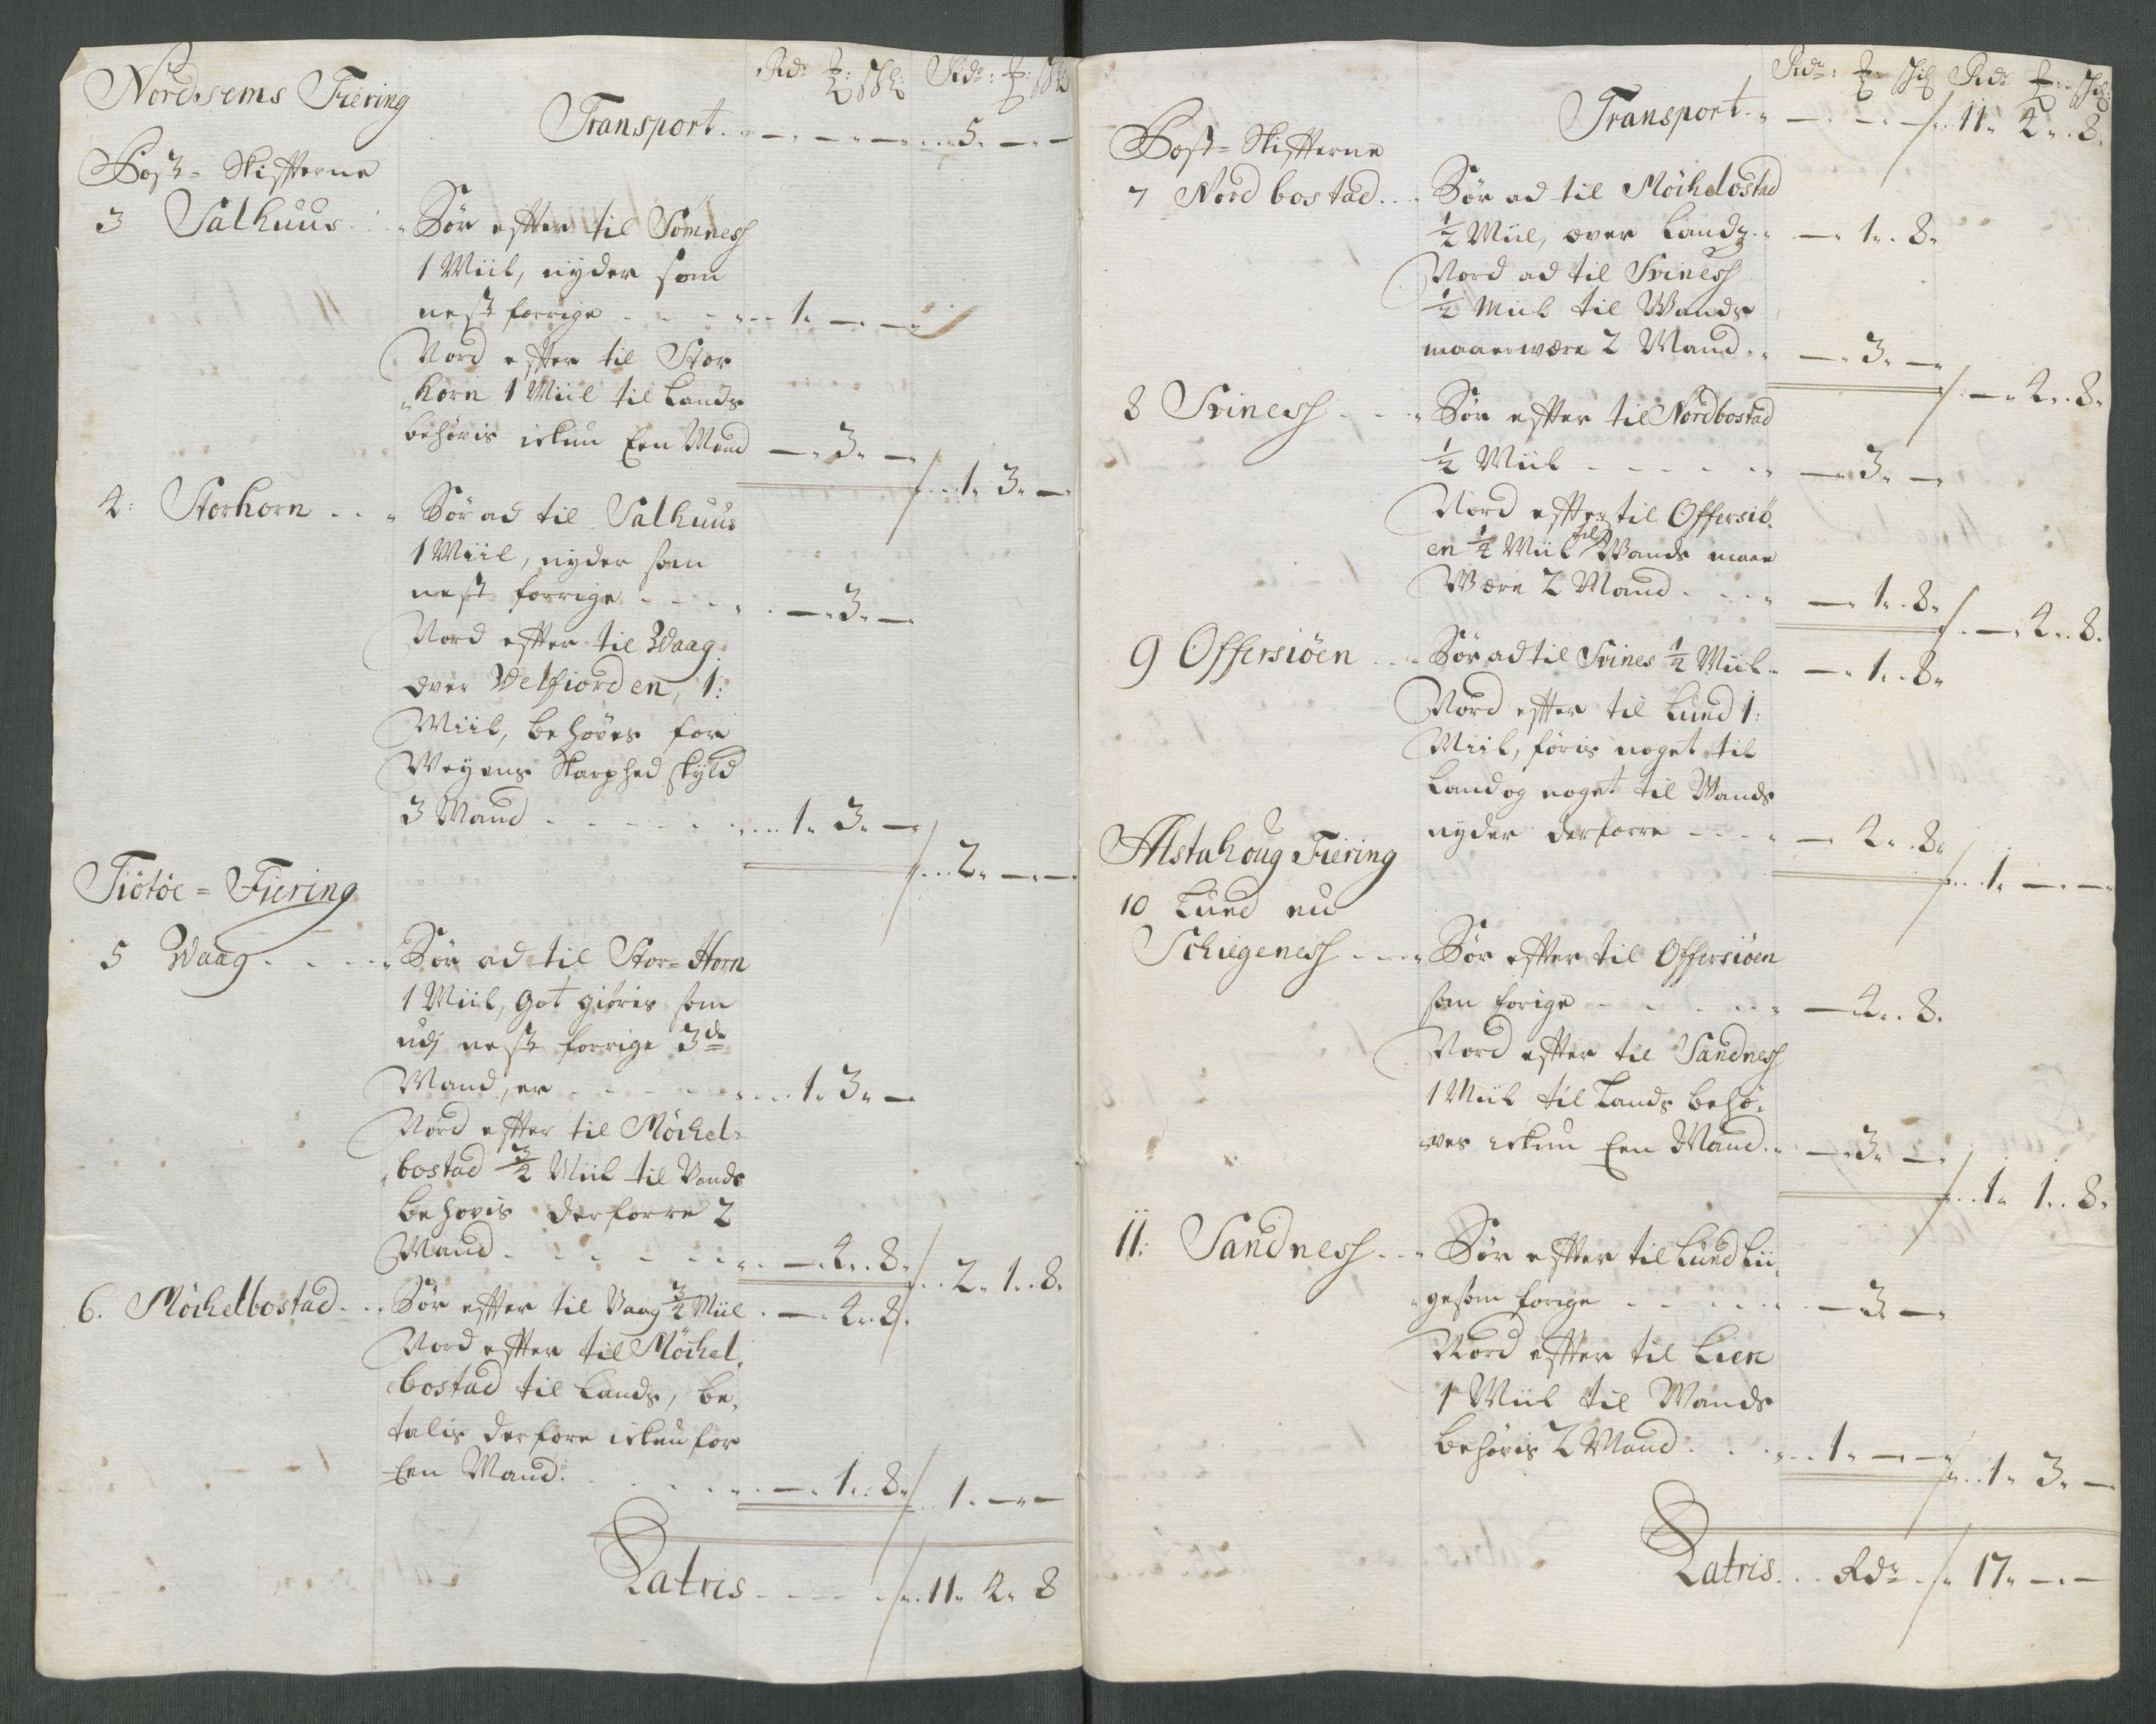 Nordsems Fiering
Rdr: ꝑ: sk: Rdr: ꝑ: sk:
Transport. — — — 5. — —
Post-Skiffterne
3 Salhuus. Sør effter til Sømness
1 Miil, nyder som
nest forrige - - - 1. — —
Nord effter til Stor
horn 1 Miil til Lands
behøvis ickun Een Mand — 3. —
1. 3. —
4: Storhorn . . Sør ad til Salhuus
1 Miil, nyder som
nest forrige - - - — 3. —
Nord effter til Waag
over Velfiorden, 1:
Miil, behøves for
Weyens Skarphed skyld
3 Mand - - - - 1. 3. —
2. — —
Tiötöe = Fiering
5 Waag - - - Sør ad til Stor-Horn
1 Miil, Got giøris som
udj nest forrige 3de
Mand, er - - - 1. 3. —
Nord effter til Möchel-
bostad 3/4 Miil til Vands
behovis derforre 2
Mand - - - - — 4. 8.
2. 1. 8.
6. Möchelbostad. Sør effter til Vaag 3/4 Miil . — 4. 8.
Nord effter til Möchel
bostad til Lands, be-
talis derfore ickun for
Een Mand: — 1. 8.
1. — —
Latris - - - 11. 4. 8
Rdr: ꝑ: skil Rdr ꝑ: skil:
Transport. — — — 11. 4. 8.
Post-Skiffterne
7 Nord bostad. . . Sør ad til Möchelbostad
1/2 Miil, over Landz. — 1. 8.
Nord ad til Sviness
1/2 Miil til Wands
maa være 2 Mand. — 3. —
— 4. 8.
8 Sviness - - - Sør effter til Nordbostad
1/2 Miil - - - - — 3. —
Nord effter til Offersiö-
en 1/4 Miil til Wands maae
Være 2 Mand - - - — 1. 8.
— 4. 8.
9 Offersiöen . . Sør ad til Svines 1/4 Miil — 1. 8.
Nord effter til Lund 1:
Miil, føris noget til
Land og noget til Wands
nyder derforre - - - — 4. 8.
1. — —
Alstahoug Fiering
10 Lund nu
Schiegeness - - Sør effter til Offersiöen
som forige - - - - — 4. 8.
Nord effter til Sandness
1 Miil til Lands behø-
ves ickun Een Mand. — 3. —
1. 1. 8.
11: Sandness - - Sør effter til Lund Lii-
gesom forige - - - - — 3. —
Nord effter til Lien
1 Miil til Wands
behøvis 2 Mand - - 1. — —
1. 3. —
Latris. . . Rdr - 17. — —